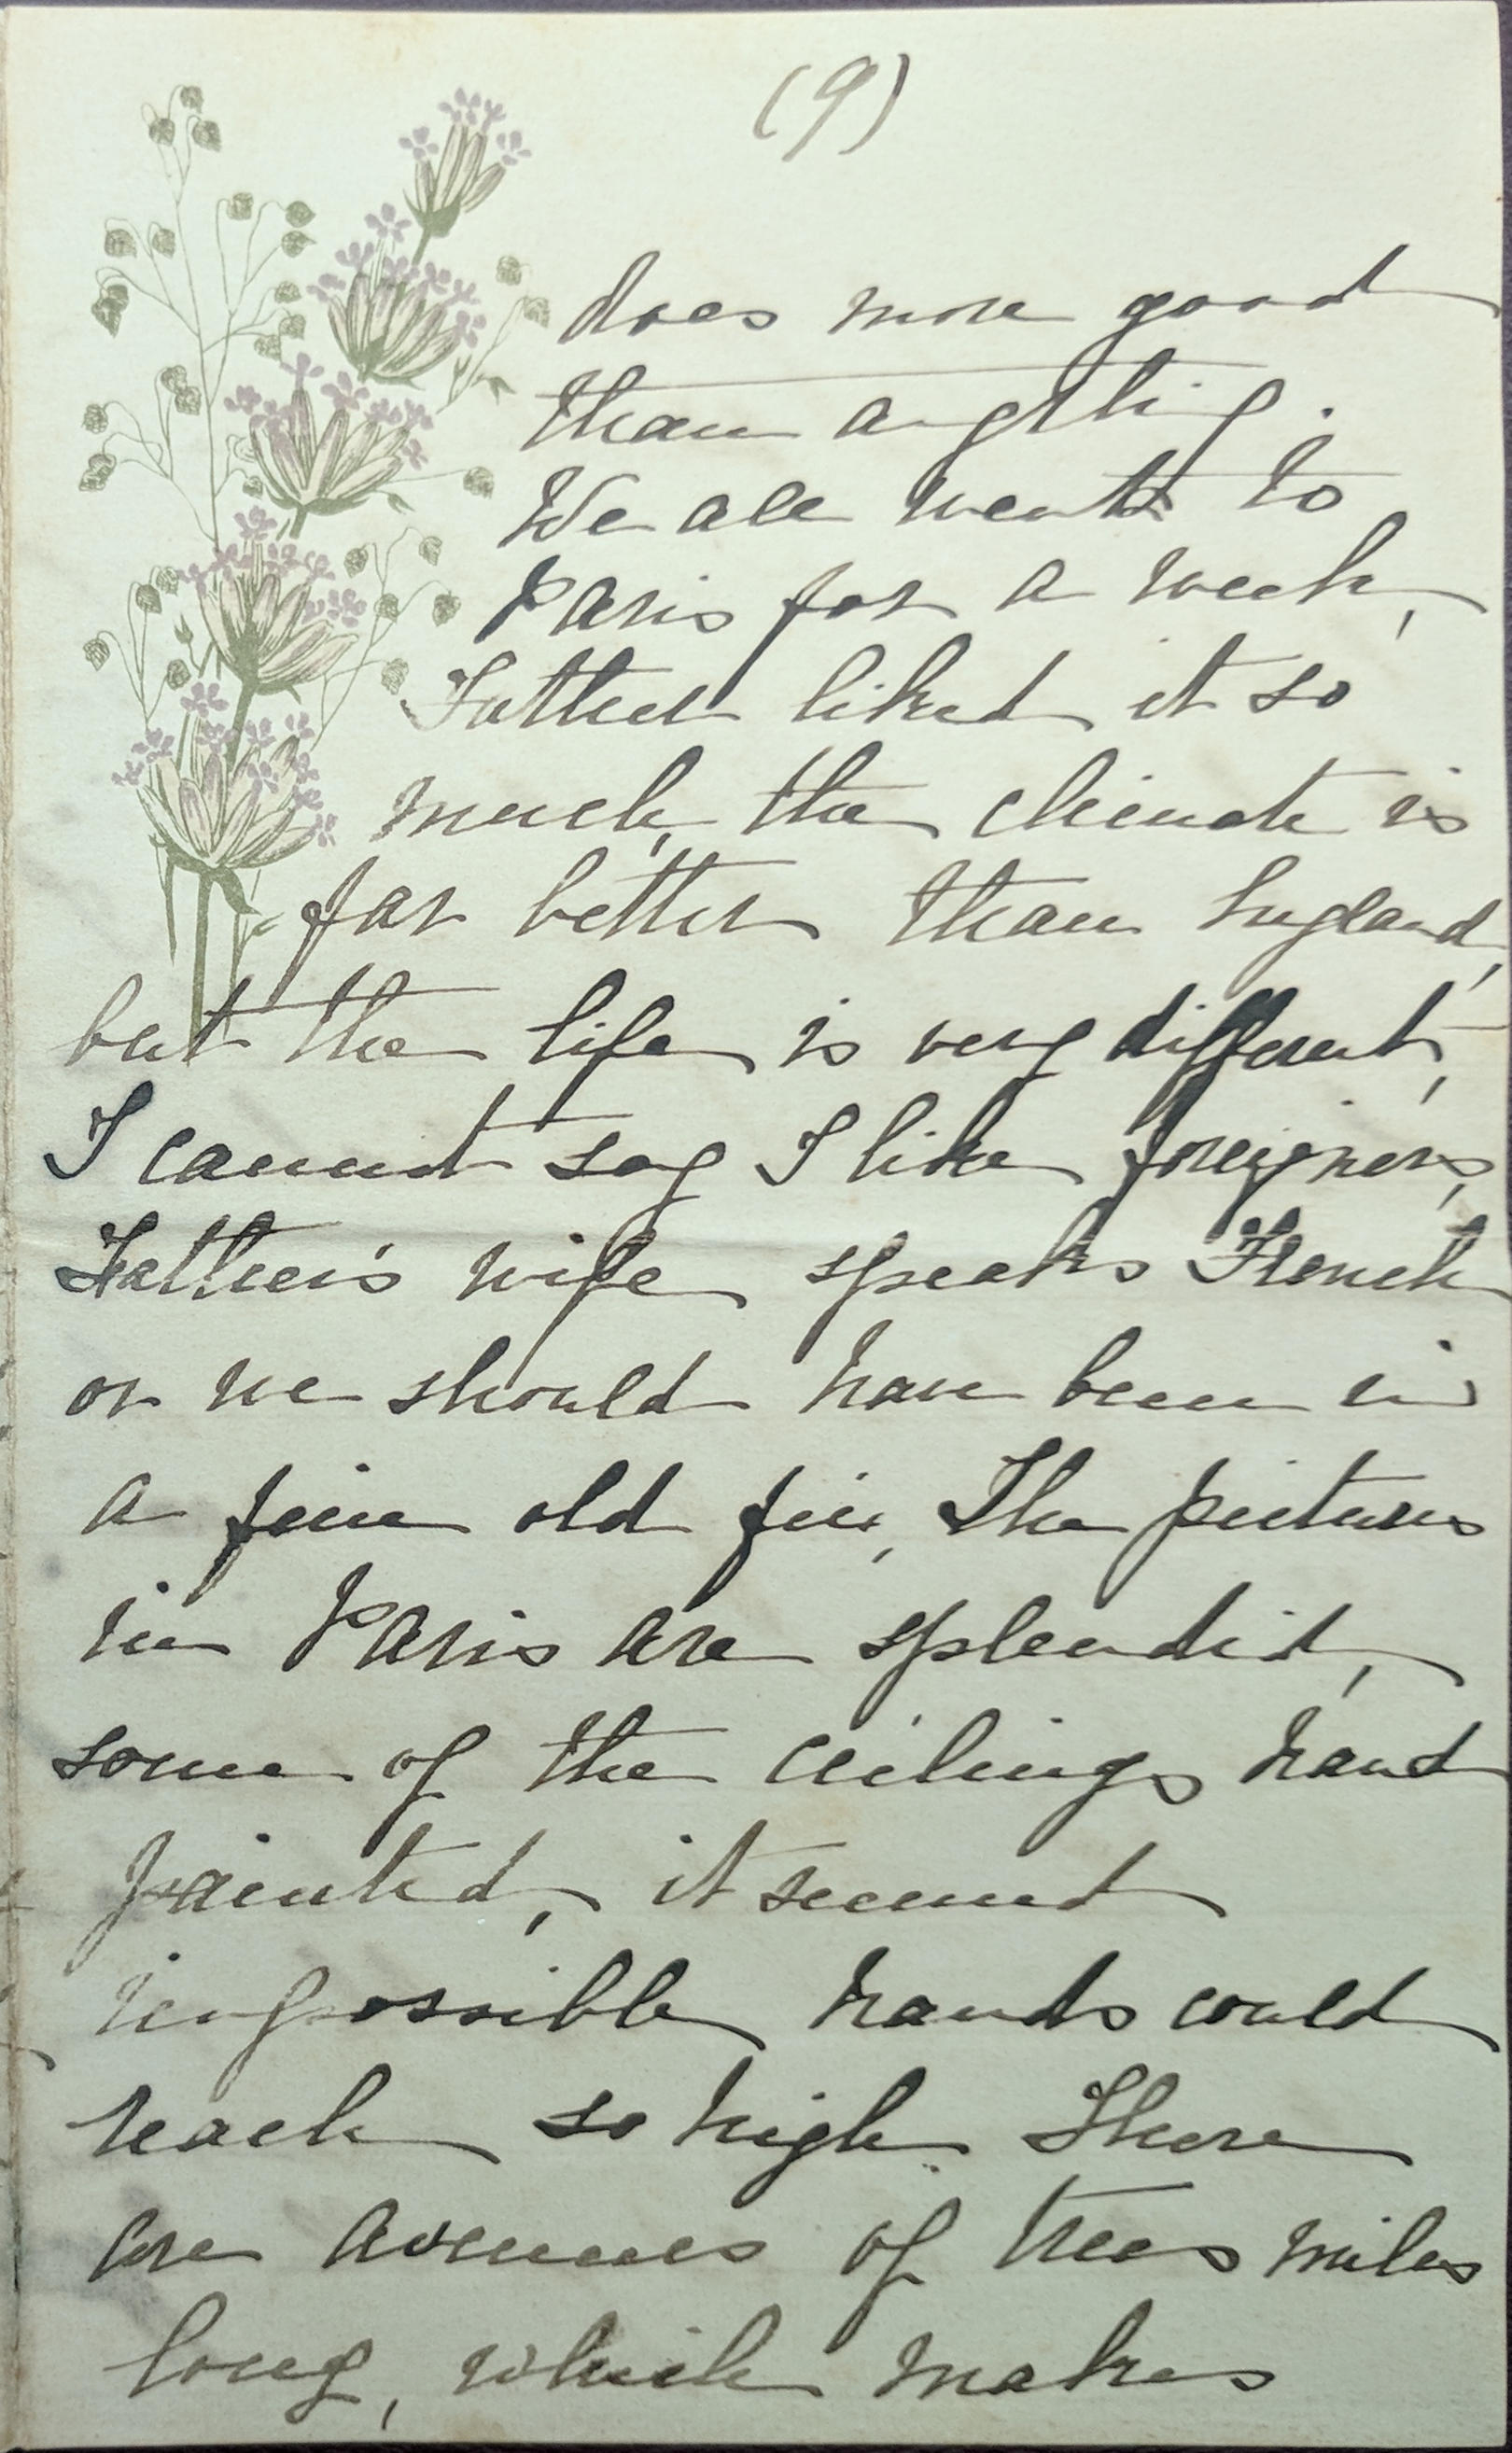 (9)
does more good
than anything.
We all went to
Paris for a week,
Father liked it so
much, the climate is
far better than England,
but the life is very different,
I cannot say I like foreigners,
Father's wife speaks French
or we should have been in
a fine old fix, The pictures
in Paris are splendid,
some of the ceilings hand
painted, it seemed
impossible hands could
reach so high There
are avenues of trees miles
long, which makes